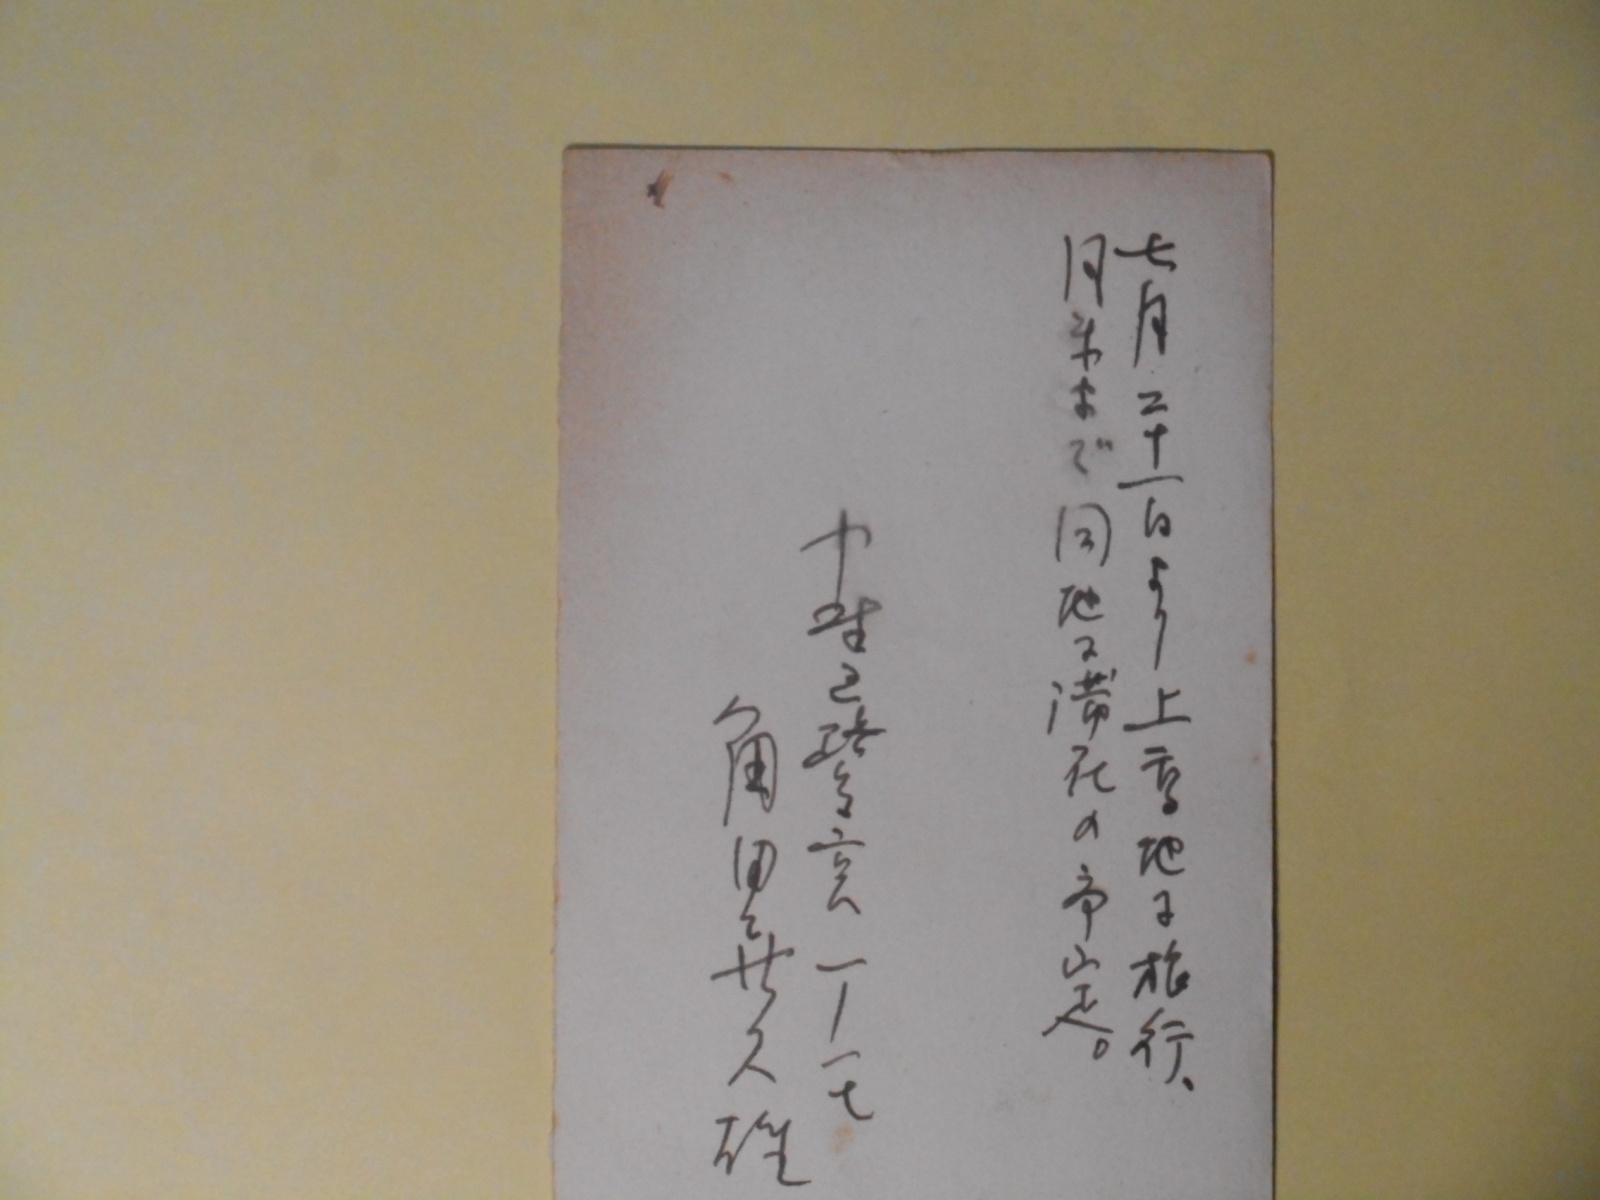 七月二十一日より上高地に旅行、
月末まで同地に滞在の予定。
中野区鷺宮一ノ一七
角田喜久雄